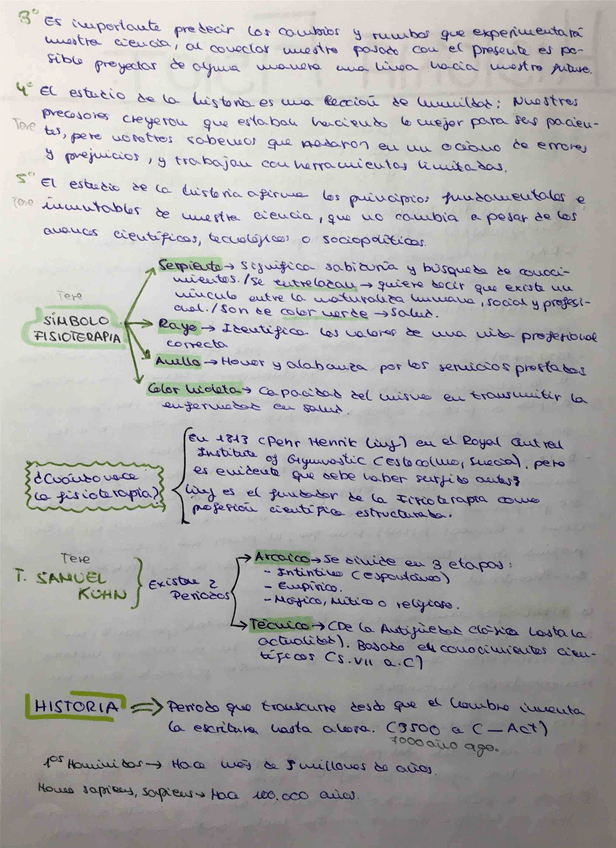 3º Es importante predecir los cambios y rumbos que experimentará
nuestra ciencia, al conectar nuestro pasado con el presente es po-
sible proyectar de alguna manera una línea hacia nuestro futuro.
4º El estudio de la historia es una lección de humildad: Nuestros
precesores creyeron que estaban haciendo lo mejor para sus pacien-
Tere
tes, pero nosotros sabemos que nadaron en un océano de errores
y prejuicios, y trabajan con herramientas limitadas.
5º El estudio de la historia afirma los principios fundamentales e
Tere
inmutables de nuestra ciencia, que no cambia a pesar de los
avances científicos, tecnológicos o sociopolíticos.
Tere
SÍMBOLO
FISIOTERAPIA
Serpiente → Significa sabiduría y búsqueda de conoci-
mientos. / Se entrelazan → quiere decir que existe un
vínculo entre la naturaleza humana, social y profesi-
onal. / Son de color verde → Salud.
Rayo → Identifica los valores de una vida profesional
correcta
Anillo → Honor y alabanza por los servicios prestados
Color violeta → Capacidad del mismo en transmitir la
enfermedad en salud.
¿Cuándo nace
la fisioterapia?
En 1813 (Pehr Henrik Ling) en el Royal Central
Institute of Gymnastic (Estocolmo, Suecia), pero
es evidente que debe haber surgido antes;
Ling es el fundador de la Fisioterapia como
profesión científica estructurada.
Tere
T. SAMUEL
KUHN
Existen 2
Periodos
Arcaico → Se divide en 3 etapas:
- Intintivo (espontáneo)
- Empírico.
- Mágico, Mítico o religioso.
Técnico → (De la Antigüedad clásica hasta la
actualidad). Basado en conocimientos cien-
tíficos (S. VII a.C)
HISTORIA ⇒ Periodo que transcurre desde que el hombre inventa
la escritura hasta ahora. (3500 a C — Act)
7000 año ago.
1ºs Homínidos → Hace más de 5 millones de años.
Homo sapiens, sapiens → Hace 100.000 años.